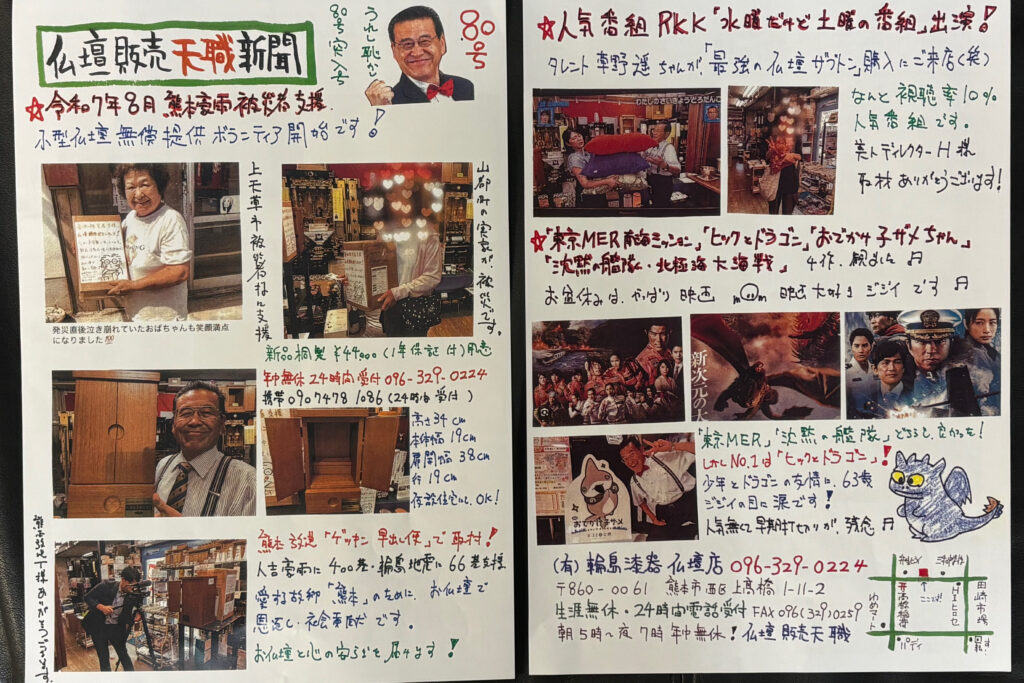 仏壇販売天職新聞
うれし恥かし
80号突入号
80号
☆令和7年8月 熊本豪雨被災者支援
小型仏壇無償提供ボランティア開始です!
上天草市被災者様に支援
山都町の実家が、被災です。
発災直後泣き崩れていたおばちゃんも笑顔満点
になりました💯
新品桐製 ¥44,000(1年保証付)用意
年中無休24時間受付 096-329-0224
携帯 090 7478 1086 (24時間受付)
高さ34cm
本体幅19cm
扉開幅38cm
行19cm
仮設住宅に、OK!
熊本放送「ゲツキン早出し便」で取材!
人吉豪雨に400基・輪島地震に66基支援
愛する故郷「熊本」のために、お仏壇で
恩返し・社会貢献です。
お仏壇と心の安らぎを届けます!
様ありがとうございます。
☆人気番組RKK「水曜だけど土曜の番組」出演!
タレント草野遥ちゃんが、「最強の仏壇ザブトン」購入にご来店(笑)
わたしのさいきょうどろだんご
なんと視聴率10%
人気番組です。
美人ディレクターH様
取材ありがとうございます!
☆「東京MER南海ミッション」「ヒックとドラゴン」「おでかけ子ザメちゃん」
「沈黙の艦隊・北極海大海戦」 4作、観ました♬
お盆休みは、やっぱり映画 m〇m 映画大好きジジイです♬
新次元の
おでかけ子ザメ
「東京MER」「沈黙の艦隊」どちらも、良かった!
しかしNo.1は「ヒックとドラゴン」!
少年とドラゴンの友情に、63歳
ジジイの目に涙です!
人気無くて早期打ち切りが、残念♬
(有)輪島漆器仏壇店 096-329-0224
〒860-0061 熊本市西区上高橋1-11-2
生涯無休・24時間電話受付 FAX 096(329)0259
朝5時〜夜7時 年中無休!仏壇販売天職
ここだよ!
高橋稲荷
ゆめマート
HIヒロセ
田崎市場
パティ